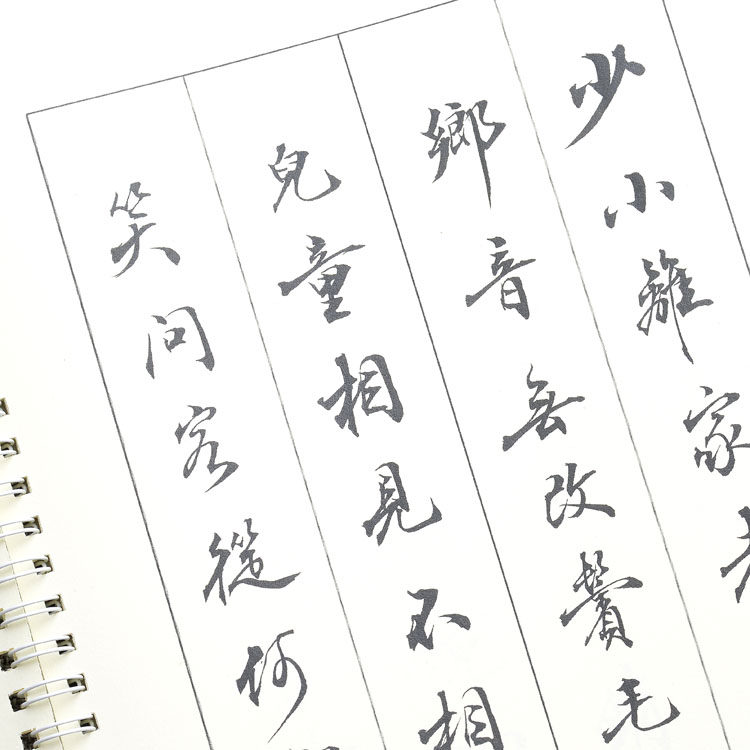 少小離家老
鄉音無改鬢毛
兒童相見不相
笑問客從何